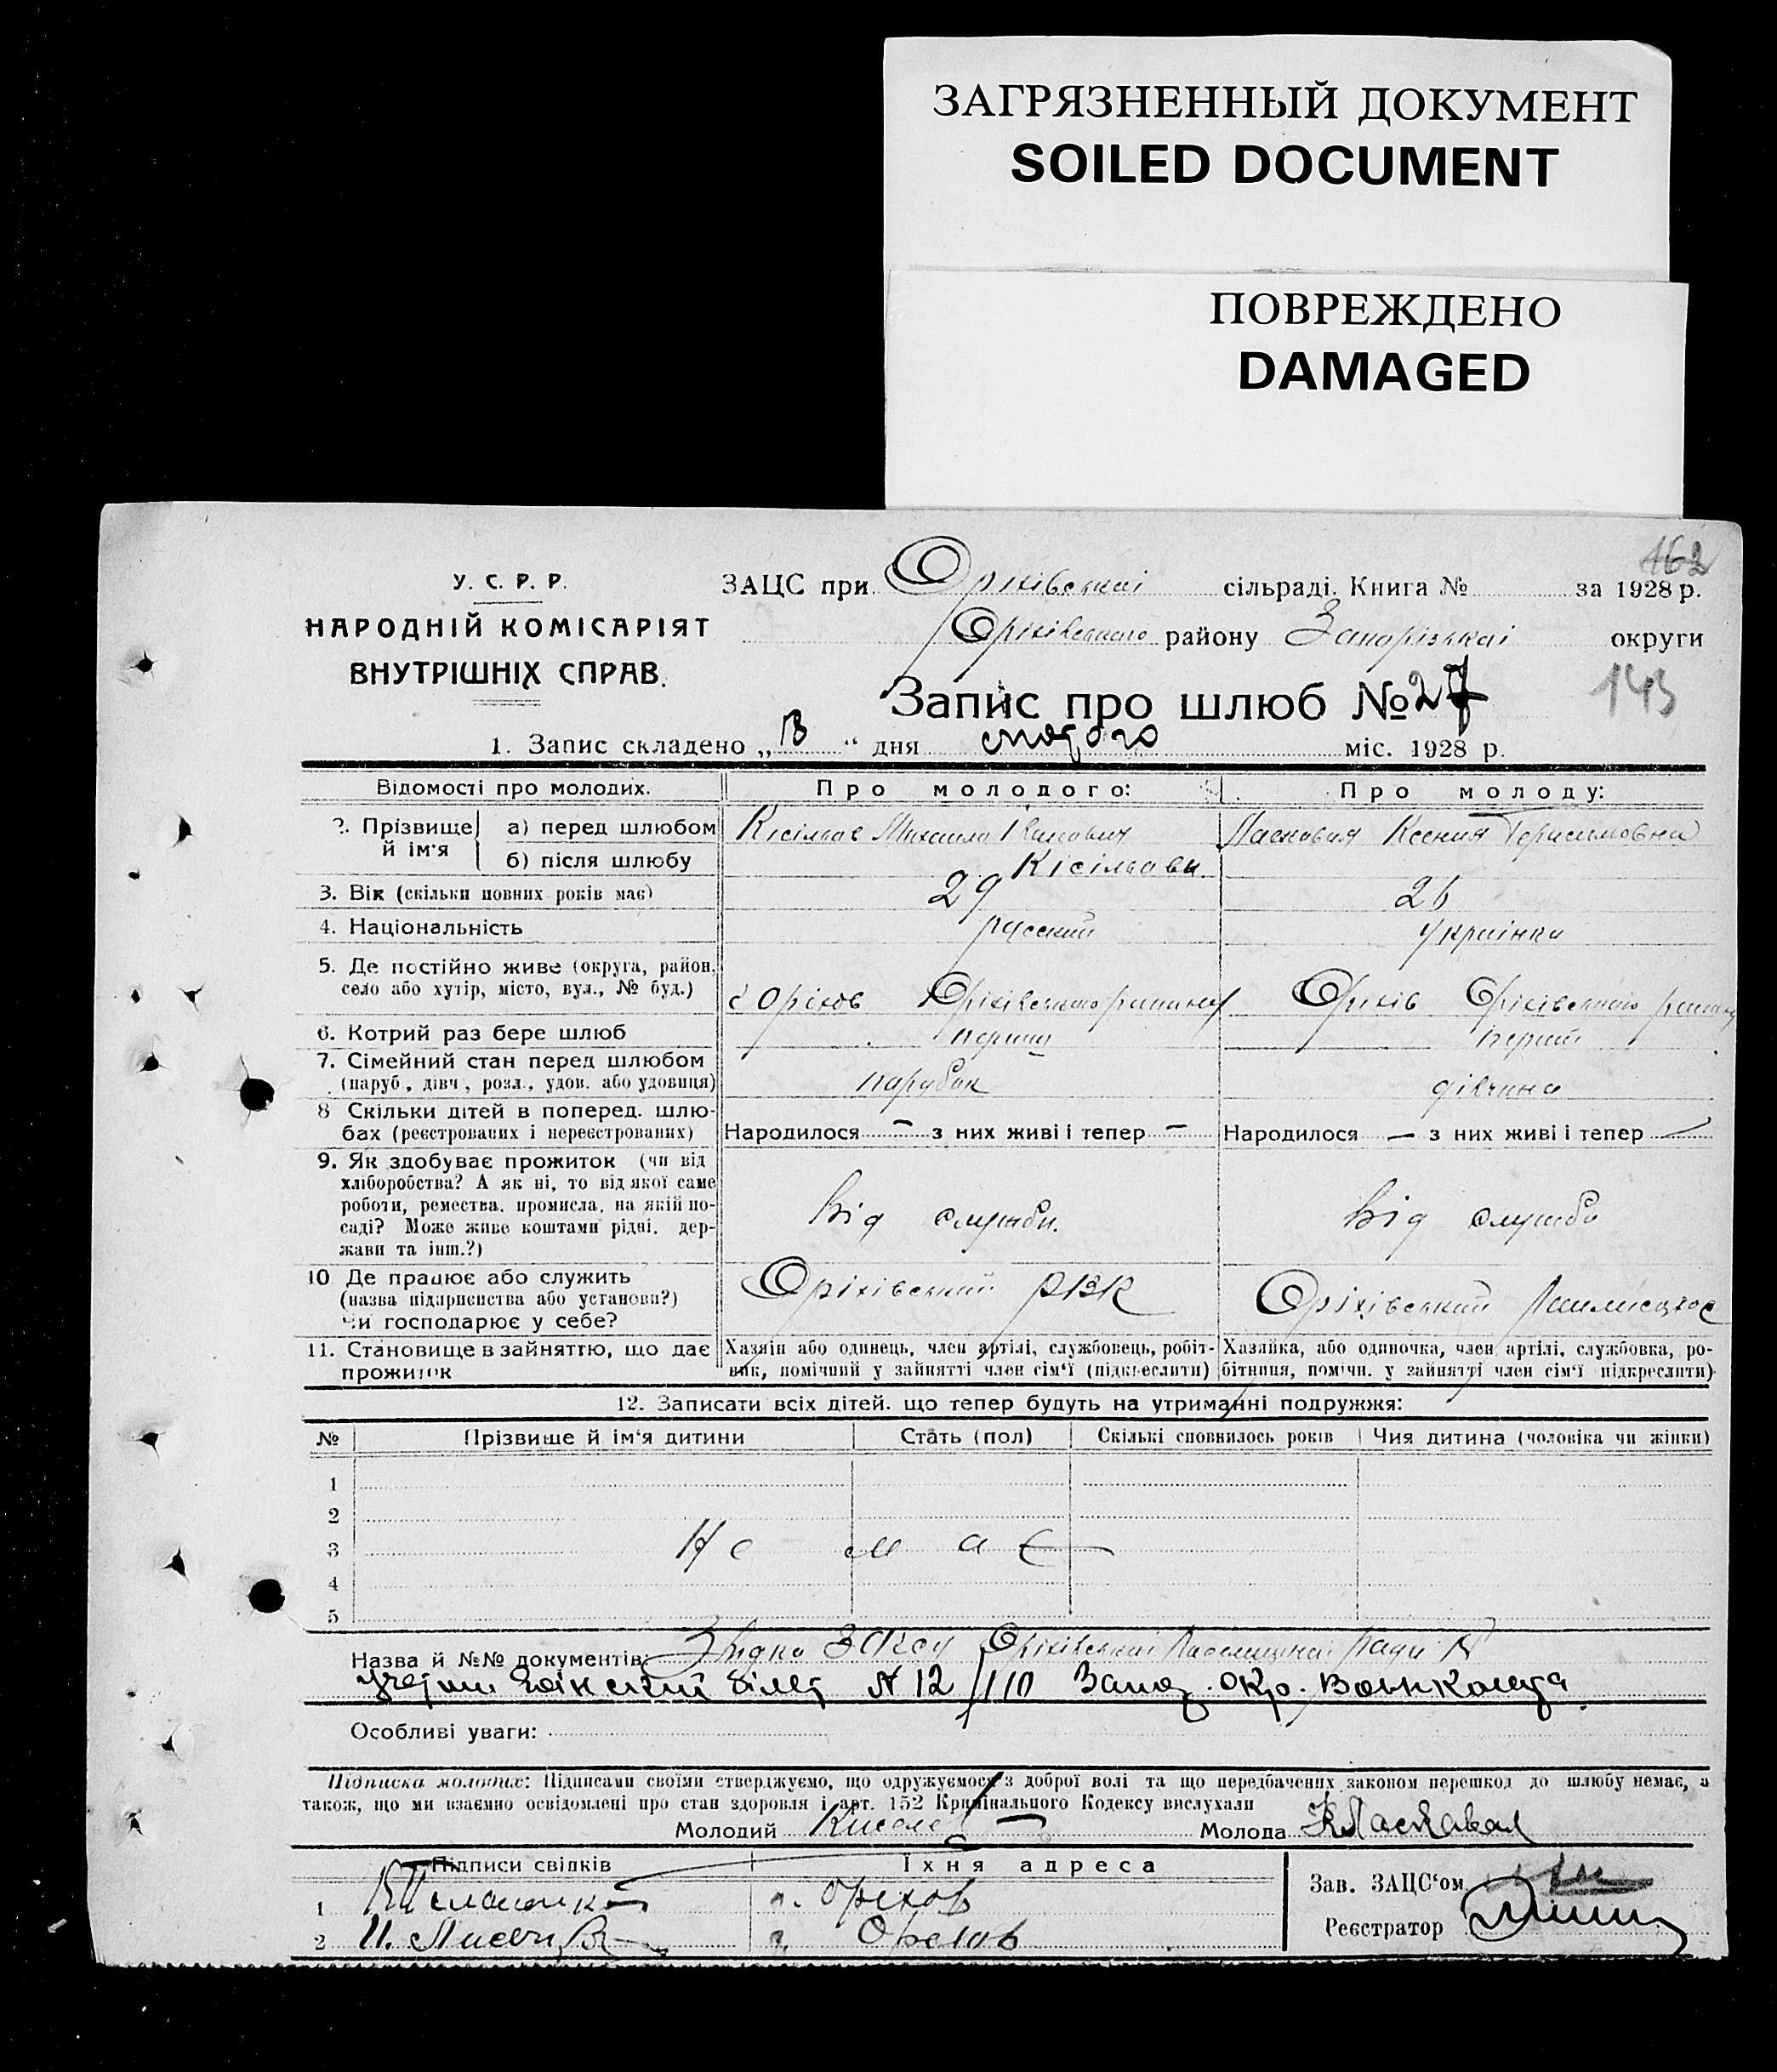 ЗАГРЯЗНЕННЫЙ ДОКУМЕНТ
SOILED DOCUMENT
ПОВРЕЖДЕНО
DAMAGED
162
У. С. Р. Р.
НАРОДНІЙ КОМІСАРІЯТ
ВНУТРІШНІХ СПРАВ.
ЗАЦС при Оріхівській сільраді. Книга № за 1928 р.
Оріхівського району Запорізькоі округи
Запис про шлюб № 27
143
1. Запис складено „13“ дня лютого міс. 1928 р.
Відомості про молодих. Про молодого: Про молоду:
2. Прізвище й ім'я а) перед шлюбом Кісільов Михаило Іванович Ласковая Ксения Герасимовна
б) після шлюбу Кісільови.
3. Вік (скільки повних років має) 29 26
4. Національність русский Українка
5. Де постійно живе (округа, район, село або хутір, місто, вул., № буд.) Оріхов Оріхівського району Оріхів Оріхівського району
6. Котрий раз бере шлюб перший перший
7. Сімейний стан перед шлюбом (паруб., дівч., розл., удов. або удовиця) парубок дівчина
8 Скільки дітей в поперед. шлюбах (реєстрованих і нереєстрованих) Народилося — з них живі і тепер — Народилося — з них живі і тепер —
9. Як здобуває прожиток (чи від
хліборобства? А як ні, то від якої саме
роботи, ремества, промисла, на якій по-
саді? Може живе коштами рідні, дер-
жави та інш.?)
Від служби. Від служби
10 Де працює або служить
(назва підприєнства або установи?)
Чи господарює у себе?
Оріхівський РВК Оріхівський
11. Становище в зайняттю, що дає прожиток
Хазяін або одинець, член артілі, службовець, робіт-
ник, помічний у зайнятті член сім'ї (підкреслити)
Хазяйка, або одиночка, член артілі, службовка, ро-
бітниця, помічн. у зайнятті член сім'ї підкреслити)
12. Записати всіх дітей. що тепер будуть на утриманні подружжя:
№ Прізвище й ім'я дитини Стать (пол) Скількі сповнилось років Чия дитина (чоловіка чи жінки)
1
2
3 Не має
4
5
Назва й №№ документів: ЗАГСу Оріхівськоі ради №
білет № 12/110 Запор. Окр. Военкомата.
Особливі уваги:
Підписка молодих: Підписами своїми стверджуємо, що одружуємося з доброї волі та що передбачених законом перешкод до шлюбу немає, а
також, що ми взаємно освідомлені про стан здоровля і арт. 152 Кримінального Кодексу вислухали
Молодий Киселев Молода КЛаскавая
Підписи свідків Їхня адреса
1 г. Орехов
2 г. Орехов
Зав. ЗАЦС'ом
Реєстратор